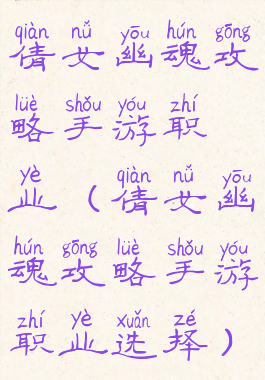 qiàn nǚ yōu hún gōng
倩女幽魂攻
lüè shǒu yóu zhí
略手游职
yè qiàn nǚ yōu
业（倩女幽
hún gōng lüè shǒu yóu
魂攻略手游
zhí yè xuǎn zé
职业选择）